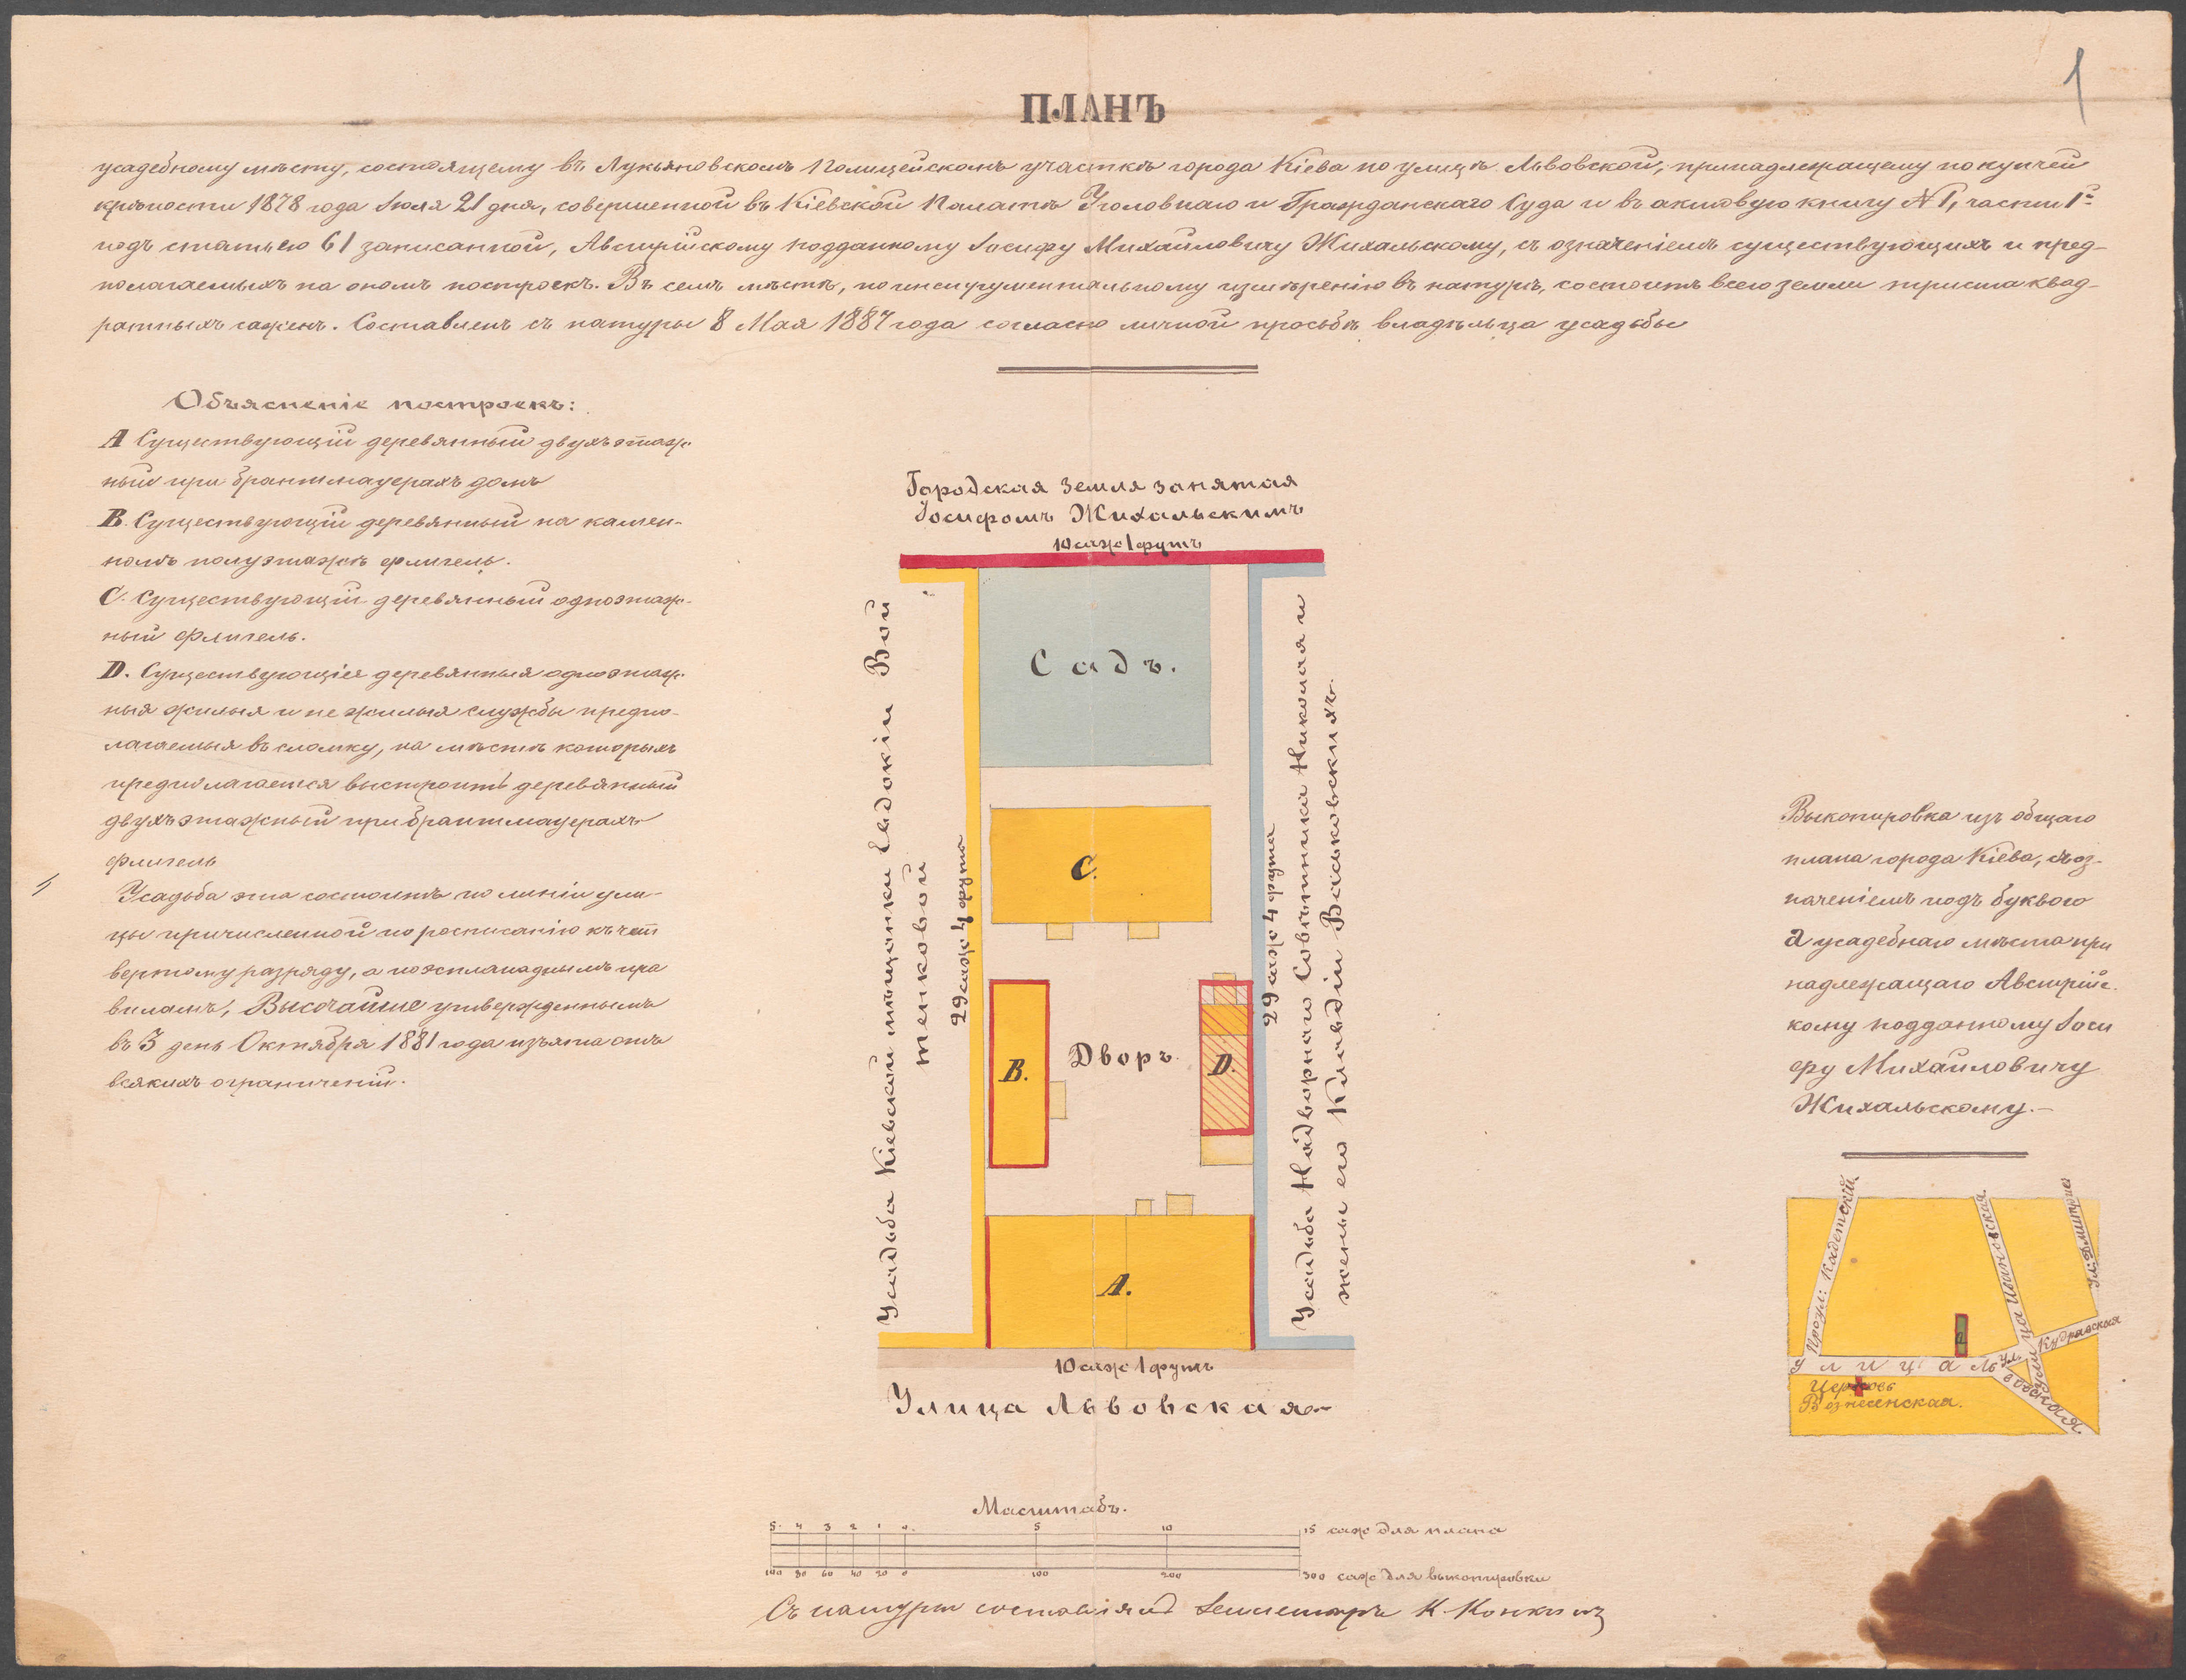 1
ПЛАНЪ
усадебному мѣсту, состоящему въ Лукьяновскомъ Полицейскомъ участкѣ города Кіева по улицѣ Львовской, принадлежащему по купчей
крѣпости 1878 года Іюля 21 дня, совершенной въ Кіевской Палатѣ Уголовнаго и Гражданскаго Суда и въ актовую книгу № 1, части 1й
подъ статьею 61 записанной, Австрійскому подданному Іосифу Михайловичу Жихальскому, съ означеніемъ существующихъ и пред-
полагаемыхъ на ономъ построекъ. Въ семъ мѣстѣ, по инструментальному измѣренію въ натурѣ, состоитъ всего земли триста квад-
ратныхъ сажень. Составленъ съ натуры 8 Мая 1887 года согласно личной просьбѣ владѣльца усадьбы
Объясненіе построекъ:
А Существующій деревянный двухъэтаж-
ный при брантмауерахъ домъ
В. Существующій деревянный на камен-
номъ полуэтажѣ флигель.
С. Существующій деревянный одноэтаж-
ный флигель.
D. Существующіе деревянныя одноэтаж-
ныя жилыя и не жилыя службы предпо-
лагаемыя въ сломку, на мѣстѣ которыхъ
предполагается выстроить деревянный
двухъэтажный при брантмауерахъ
флигель
Усадьба эта состоитъ по линіи ули-
цы причисленной по росписанію къ чет
вертому разряду, а по эспланаднымъ пра
виламъ, Высочайше утвержденнымъ
въ 3 день Октября 1881 года изъята отъ
всякихъ ограниченій.
Городская Земля занятая
Іосифомъ Жихальскимъ
10 саж 1 футъ
Садъ.
С.
В.
Дворъ.
D.
А.
Усадьба Кіевской мѣщанки Евдокіи Вой
тенковой
29 саж 4 фута
29 саж 4 фута
Усадьба Надворнаго Совѣтника Николая и
жены его Клавдіи Васьковскихъ.
10 саж 1 футъ
Улица Львовская
Выкопировка изъ общаго
плана города Кіева, съ оз-
наченіемъ подъ буквою
а усадебнаго мѣста при
надлежащаго Австрійс-
кому подданному Іоси
фу Михайловичу
Жихальскому.
Проѣз: Кадетскій
Ивановская
Ул: Дмитріев
Ул Кудрявская
Улица Львовская
Церковь
Вознесенская.
Масштабъ.
5 4 3 2 1 0 5 10 15 саж для плана
100 80 60 40 20 0 100 200 300 саж для выкопировки
Съ натуры составлялъ Землемѣръ К. Конкинъ